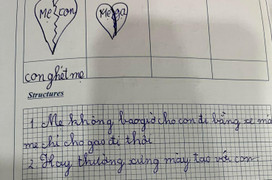 Mẹ con
Mẹ ga
con ghét mẹ
Structures
1. Mẹ không bao giờ cho con đi bằng xe mà
mẹ chỉ cho gao đi thôi
2. Hay thường xưng mày tao với con